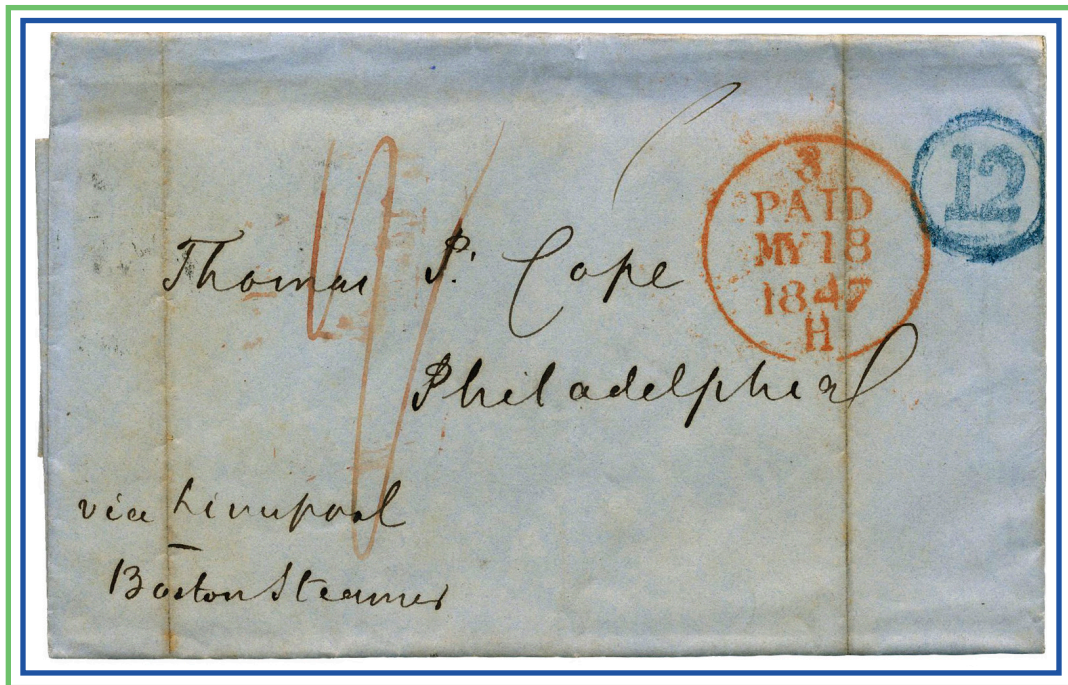 3
PAID
MY 18
1847
H
12
Thomas P. Cope
Philadelphia
via Liverpool
Boston Steamer